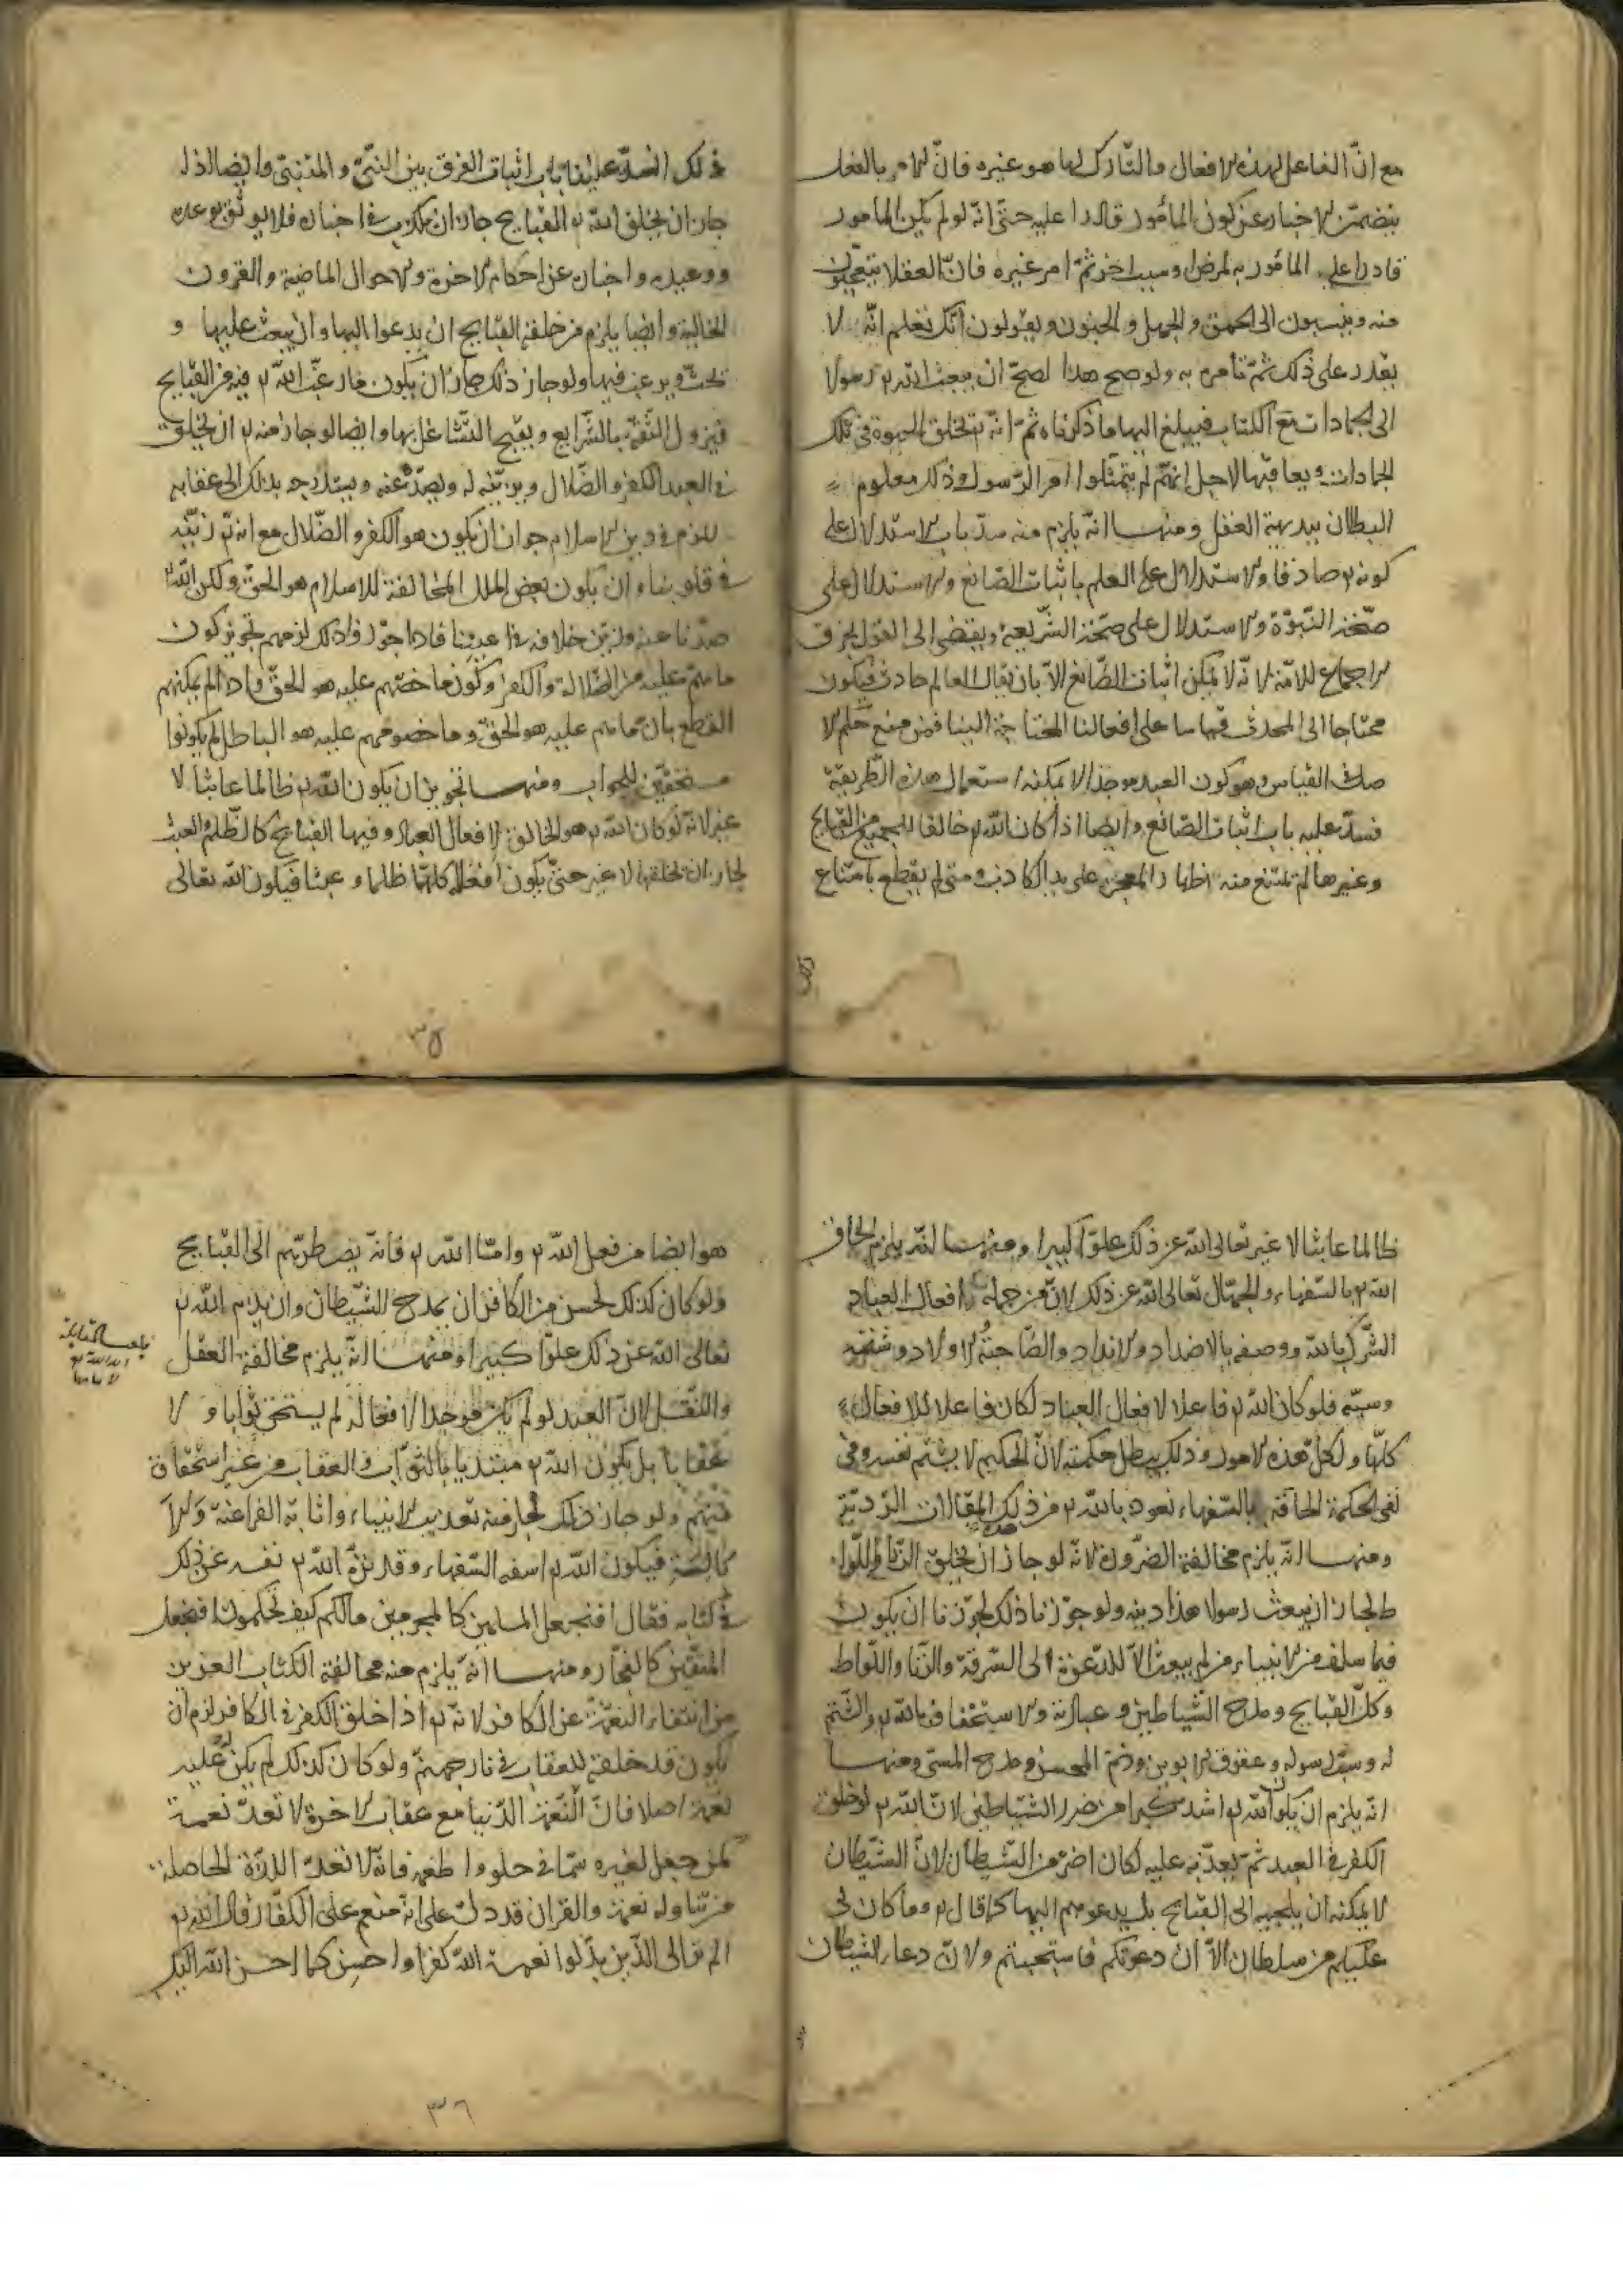 مع انّ الفاعل لهذه الافعال والتّارك لها هو غيره فانّ الامر بالفعل
يتضمّن الاخبار عن كون المأمور قادرا عليه حتّى انّه لو لم يكن المامور
قادرا على المأمور به لمرض او سبب اخر ثمّ امر غيره فانّ العقلا يتعجّبون
منه وينسبون الى الحمق والجهل والجنون ويقولون انّك تعلم انّه لا
يقدر على ذلك ثمّ تأمره به ولو صحّ هذا لصحّ ان يبعث الله تم رسولا
الى الجمادات مع الكتاب فيبلغ اليها ما ذكرناه ثمّ انّه تم يخلق الحيوة فى تلك
الجمادات ويعاقبها لاجل انهم لم يمتثلوا امر الرّسول وذلك معلوم
البطلان ببديهة العقل ومنها انّه يلزم منه سدّ باب الاستدلال على
كونه تم صادقا والاستدلال على العلم باثبات الصّانع والاستدلال على
صحّة النبوّة والاستدلال على صحّة الشّريعة ويفضى الى القول بخرق
اجماع للامّة لانّه لا يمكن اثبات الصّانع الاّ بان يقال العالم حادث فيكون
محتاجا الى المحدث قياسا على افعالنا المحتاجة الينا فمن منع حكم الا
صل القياس وهو كون العبد موجدا لا يمكنه استعمال هذه الطّريقة
فسدّ عليه باب اثبات الصّانع وايضا اذا كان الله تم خالقا للجميع من القبايح
وغيرها لم يمتنع منه اظهار المعجز على يد الكاذب ومتى لم يقطع بامتناع
ذلك انسدّ علينا باب اثبات الفرق بين النبّى والمتنبّى وايضا اذا
جاز ان يخلق الله تم القبايح جاز ان يكذب فى اخباره فلا يوثق بوعده
ووعيده واخباره عن احكام الاخرة والاحوال الماضية والقرون
الخالية وايضا يلزم من خلقه القبايح ان يدعوا اليها وان يبعث عليها و
يحثّ ويرغب فيها ولو جاز ذلك جاز ان يكون ما رغّب الله تم فيه من القبايح
فيزول الثّقة بالشّرايع ويقبح التّشاغل بها وايضا لو جاز منه تم ان يخلق
فى العبد الكفر والضّلال ويزيّنه له ويصدّه عنه ويستدرجه بذلك الى عقابه
للزم فى دين الاسلام جواز ان يكون هو الكفر والضّلال مع انه تم زيّنه
فى قلوبنا وان يكون بعض الملل المخالفة للاسلام هو الحقّ ولكن الله تم
صدّنا عنه وزيّن خلافه فى اعيننا فاذا جوّزوا ذلك لزمهم تجويز كون
ما هم عليه من الضّلالة والكفر وكون ما خصمهم عليه هو الحقّ واذا لم يمكنهم
القطع بان ما هم عليه هو الحقّ وما خصومهم عليه هو الباطل لم يكونوا
مستحقّين للجواب ومنها تجويز ان يكون الله تم ظالما عابثا لا
غير لانّه لو كان الله تم هو الخالق لافعال العباد وفيها القبايح كالظّلم والعبث
لجاز ان يخلقها لا غير حتّى يكون افعاله كلّها ظلما وعبثا فيكون الله تعالى
٣٥
ظالما عابثا لا غير تعالى الله عن ذلك علوّا كبيرا ومنها انّه يلزم الحاق
الله تم بالسّفهاء والجهّال تعالى الله عن ذلك لانّ من جملة افعال العباد
الشّرك بالله ووصفه بالاضداد والانداد والصّاحبة والاولاد وشتمه
وسبّه فلو كان الله تم فاعلا لافعال العباد لكان فاعلا للافعال
كلّها ولكلّ هذه الامور وذلك يبطل حكمته لانّ الحكيم لا يشتم نفسه وفى
نفى الحكمة الحاقه بالسّفهاء نعوذ بالله تم من ذلك المقالات الرّديّة
ومنها انّه يلزم مخالفة الضّرورة لانّه لو جاز ان يخلق الزّنا واللّوا
ط لجاز ان يبعث رسولا هذا دينه ولو جوّزنا ذلك لجوّزنا ان يكون
فيما سلف من الانبياء من لم يبعث الاّ للدّعوة الى السّرقة والزّنا واللّواط
وكلّ القبايح ومدح الشّياطين وعبادته والاستخفاف بالله تم والشّتم
له وسبّ رسوله وعقوق الابوين وذمّ المحسن ومدح المسئ ومنها
انّه يلزم ان يكون الله تم اشدّ ضررا من ضرر الشّياطين لانّ الله تم لو خلق
الكفر فى العبد ثمّ يعذّبه عليه لكان اضرّ من الشّيطان لانّ الشّيطان
لا يمكنه ان يلجئه الى القبايح بل يدعوهم اليها كما قال تم وما كان لى
عليكم من سلطان الاّ ان دعوتكم فاستجبتم ولانّ دعاء الشّيطان
هو ايضا من فعل الله تم وامّا الله تم فانّه يضطرّهم الى القبايح
ولو كان كذلك لحسن من الكافر ان يمدح الشّيطان وان يذم الله تم
تعالى الله عن ذلك علوّا كبيرا ومنها انّه يلزم مخالفة العقل
والنّقل لانّ العبد لو لم يكن موجدا لافعاله لم يستحق ثوابا ولا
عقابا بل يكون الله تم مبتديا بالثّواب والعقاب من غير استحقاق
منهم ولو جاز ذلك لجاز منه تعذيب الانبياء واثابة الفراعنة والا
بالسة فيكون الله تم اسفه السّفهاء وقد نزّه الله تم نفسه عن ذلك
فى كتابه فقال افنجعل المسلمين كالمجرمين مالكم كيف تحكمون افنجعل
المتّقين كالفجّار ومنها انّه يلزم منه مخالفة الكتاب العزيز
من انتفاء النعمة عن الكافر لانّه تم اذا خلق الكفر فى الكافر لزم ان
يكون قد خلقه للعقاب فى نار جهنّم ولو كان كذلك لم يكن له عليه
نعمة اصلا فانّ النّعمة الدّنيا مع عقاب الاخرة لا تعدّ نعمة
كمن جعل لغيره سمّا فى حلوا واطعمه فانّه لا تعدّ اللذّة الحاصلة
من تناوله نعمة والقران قد دلّ على انّه منعم على الكفّار قال الله تم
الم تر الى الذّين بدّلوا نعمة الله كفرا واحسن كما احسن الله اليك
٣٦